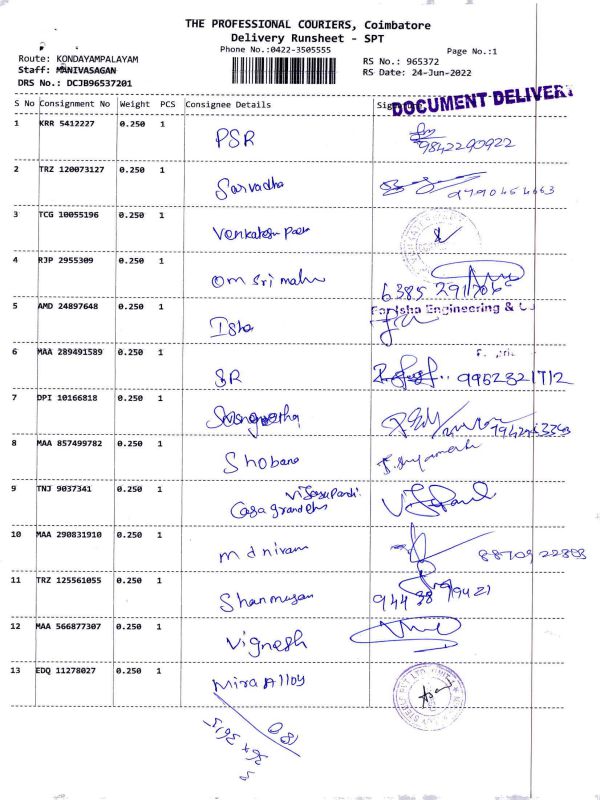 THE PROFESSIONAL COURIERS, Coimbatore
Delivery Runsheet - SPT
Phone No.:0422-3505555
Page No.:1
Route: KONDAYAMPALAYAM
RS No.: 965372
Staff: MANIVASAGAN
RS Date: 24-Jun-2022
DRS No.: DCJB96537201
DOCUMENT DELIVERY
S No Consignment No Weight PCS Consignee Details
1 KRR 5412227 0.250 1 PSR 9842290922
2 TRZ 120073127 0.250 1 Sarvadha
3 TCG 10055196 0.250 1
4 RJP 2955309 0.250 1 Om sri
5 AMD 24897648 0.250 1 Isha
Engineering &
6 MAA 289491589 0.250 1 SR 9952321712
7 DPI 10166818 0.250 1
8 MAA 857499782 0.250 1 Shobana
9 TNJ 9037341 0.250 1
10 MAA 290831910 0.250 1
11 TRZ 125561055 0.250 1 Shanmugam
12 MAA 566877307 0.250 1 Vignesh
13 EDQ 11278027 0.250 1 Mira Alloy